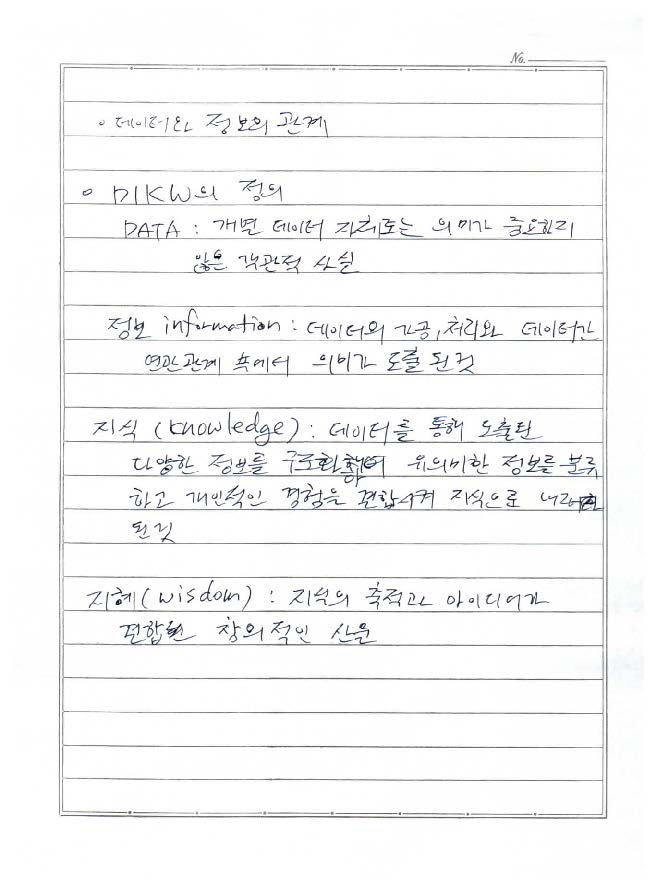 No.
◦ 데이터와 정보의 관계
◦ DIKW의 정의
DATA : 개별 데이터 자체로는 의미가 중요하지
않은 객관적 사실
정보 information : 데이터의 가공, 처리와 데이터간
연관관계 속에서 의미가 도출된것
지식 (knowledge) : 데이터를 통해 도출된
다양한 정보를 구조화하여 유의미한 정보를 분류
하고 개인적인 경험을 결합시켜 지식으로 내재화
된것
지혜 (wisdom) : 지식의 축적과 아이디어가
결합된 창의적인 산물